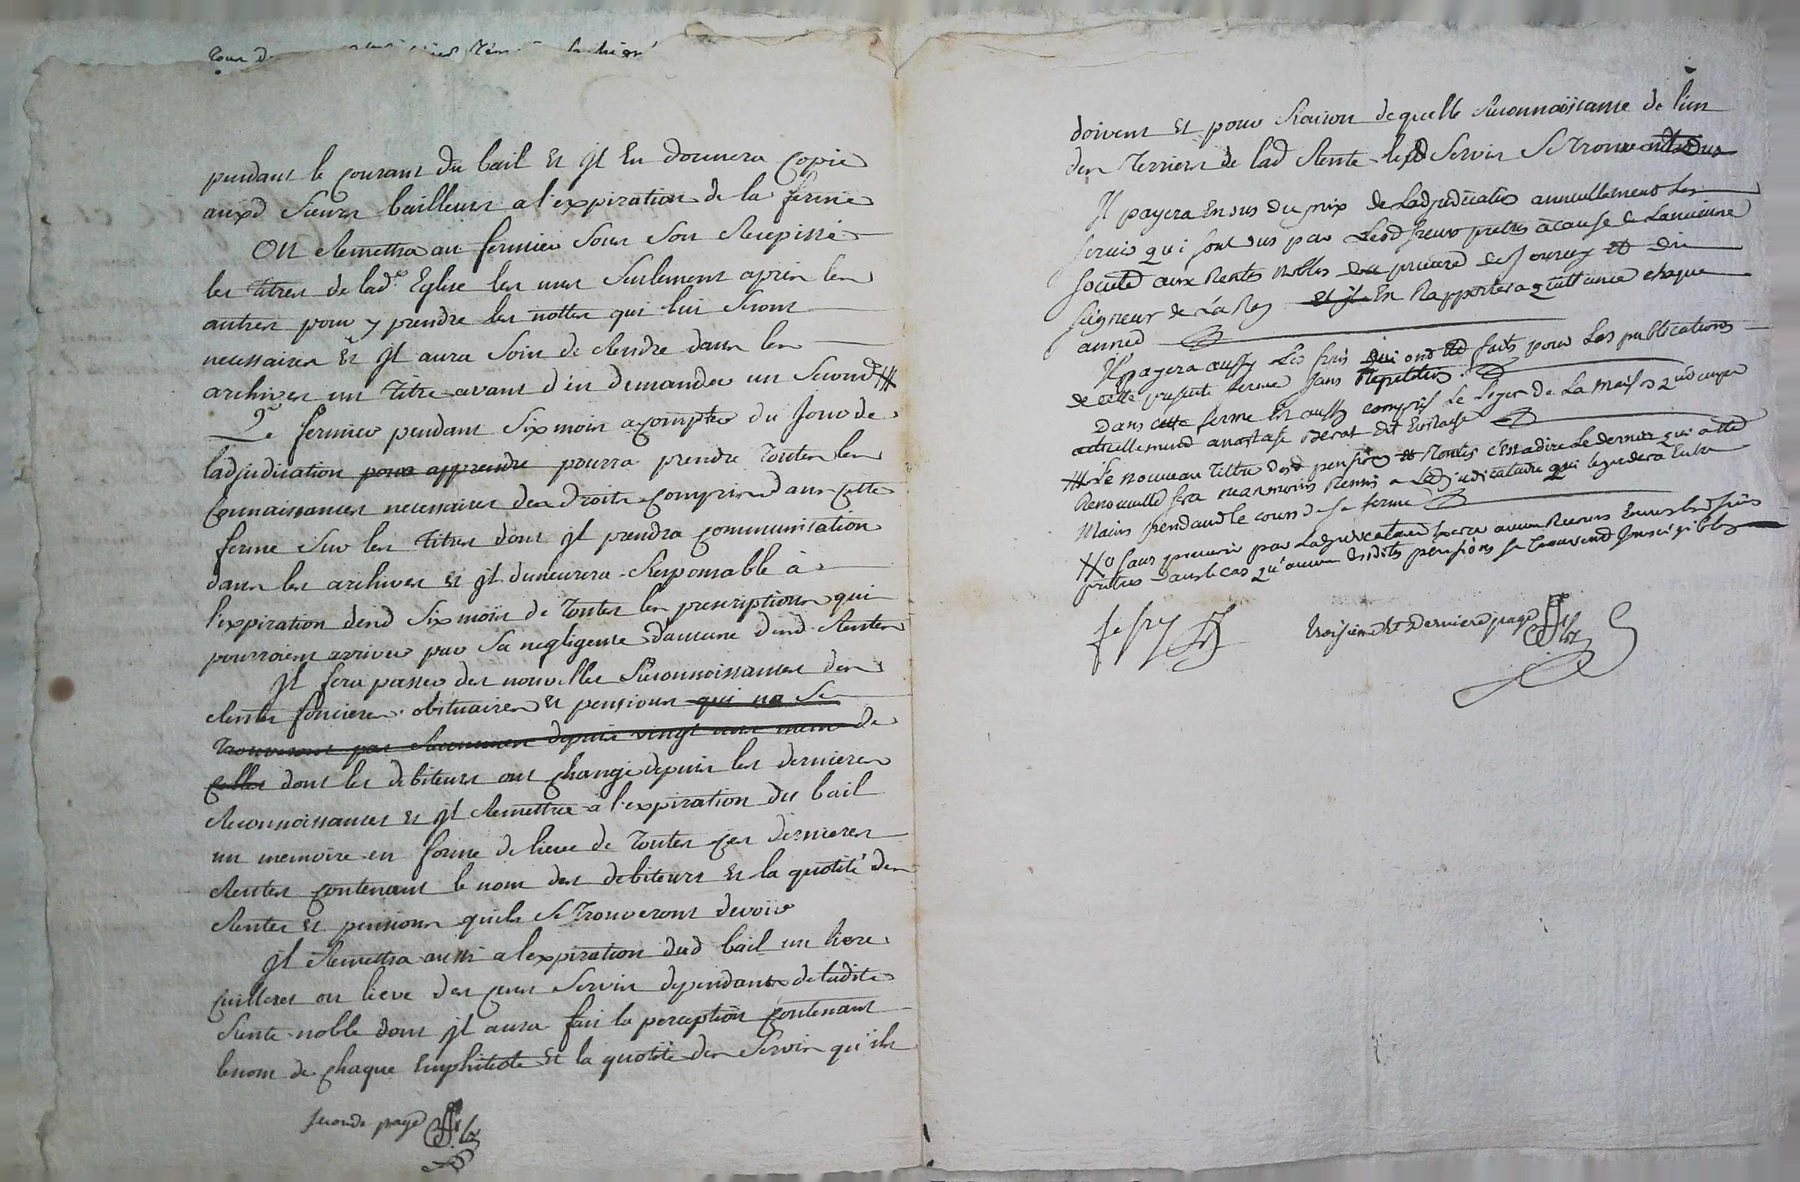 pendant le courant du bail et jl En donnera Copie
auxd Sieurs bailleurs a l'expiration de la ferme
On Remettra au fermier Sous Son Recepissé
les titres de lad.e Eglise les uns Seulement apres les
autres pour y prendre les nottes qui lui Seront
necessaires Et jl aura Soin de Rendre dans les
archives un titre avant d'en demander un Second #
Le fermier pendant Six mois a compter du Jour de
ladjudication pour apprendre pourra prendre toutes les
Connaissances necessaires des droits compris dans cette
ferme Sur les titres dont jl prendra communication
dans les archives et jl demeurera Responsable à
l'expiration desd Six mois de toutes les prescriptions qui
pourroient arriver par Sa negligence d'aucune desd Rentes
jl fera passer des nouvelles Reconnoissances des
Rentes foncieres obituaires et pensions qui ne Se
trouveront pas Reconnues depuis vingt neuf de
celles dont les debiteurs ont changé depuis les dernieres
Reconnoissances et jl Remettra a l'expiration du bail
un memoire en forme de lieve de toutes ces dernieres
Rentes contenant le nom des debiteurs et la quotité des
Rentes et pensions quils Se trouveront devoir
jl Remettra aussi a l'expiration dud bail un lieve
cuilleret ou lieve des cens Servis dependants de ladite
Rente noble dont jl aura fait la perception contenant
le nom de chaque Emphiteote Et la quotité des Servis qu'ils
seconde page
doivent Et pour Raison de quelle Reconnoissance de l'un
des terriers de lad Rente lesd Servis Se trouvent dus
Jl payera En sus du prix de Ladjudication annuellement Les
servis qui sont dus par Lesd Sieurs pretres à cause de Lancienne
societé aux Rentes nobles du prieuré de et du
seigneur de et jl En Rapportera quittance chaque
année
Jl payera aussy Les frais qui ont été faits pour Les publications
de cette presente ferme sans Repetition
Dans cette ferme Est aussy compris Le Loyer de La maison
actuellement dit Eustache
# Le nouveau tiltre desd pensions Rentes C'est a dire Le dernier qui a été
Renouvellé sera neanmoins Remis a Ladjudicataire qui le gardera Entre
Mains pendant le cours de sa ferme
Sans pouvoir par Ladjudicataire avoir aucun Recours Envers
pretres dans le cas qu'aucunes desdites pensions se trouvent
troisieme Et Derniere page